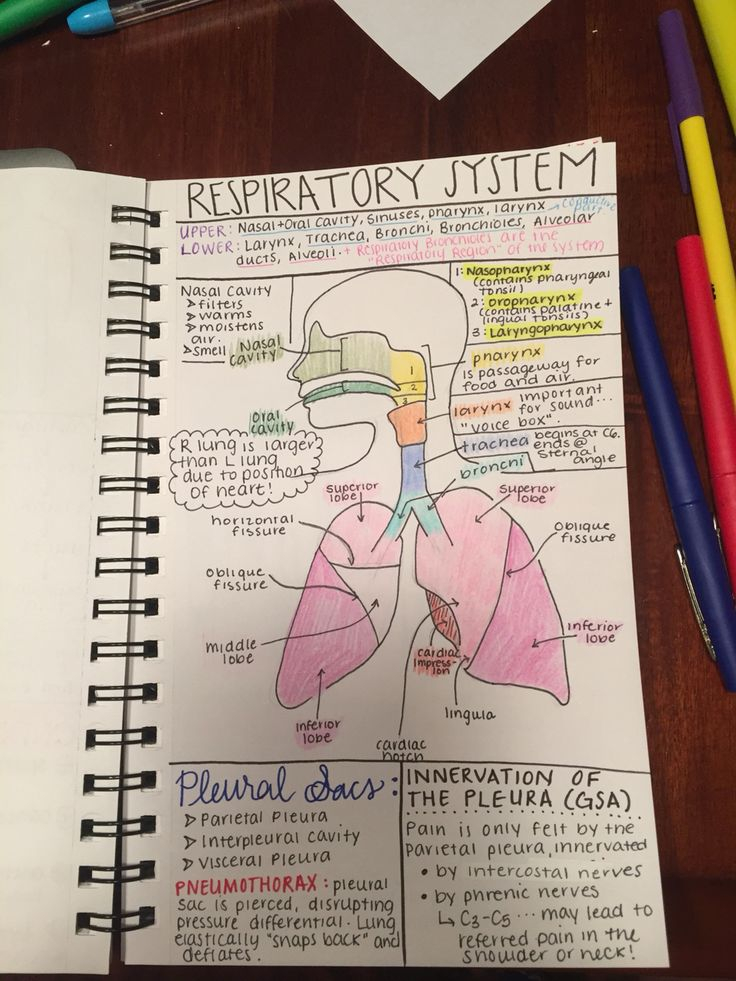 RESPIRATORY SYSTEM
UPPER: Nasal + Oral Cavity, Sinuses, pharynx, larynx → conductive part
LOWER: Larynx, Trachea, Bronchi, Bronchioles, Alveolar
ducts, Alveoli. + Respiratory Bronchioles are the
"Respiratory Region" of the system
Nasal Cavity
➢ filters
➢ warms
➢ moistens
air.
➢ smell
Nasal
cavity
Oral
cavity
R lung is larger
than L lung
due to position
of heart!
1: Nasopharynx
(contains pharyngeal
tonsil)
2: Oropharynx
(contains palatine +
lingual tonsils)
3: Laryngopharynx
1
2
3
pharynx
is passageway for
food and air.
larynx important
for sound...
"voice box".
trachea begins at C6.
ends @
sternal
angle
bronchi
superior
lobe
horizontal
fissure
oblique
fissure
middle
lobe
inferior
lobe
superior
lobe
oblique
fissure
inferior
lobe
cardiac
impress-
ion
lingula
cardiac
notch
Pleural Sacs:
➢ Parietal Pleura
➢ Interpleural cavity
➢ Visceral Pleura
PNEUMOTHORAX: pleural
sac is pierced, disrupting
pressure differential. Lung
elastically "snaps back" and
deflates.
INNERVATION OF
THE PLEURA (GSA)
Pain is only felt by the
Parietal pleura, innervated
• by intercostal nerves
• by phrenic nerves
↳ C3-C5 ... may lead to
referred pain in the
shoulder or neck!